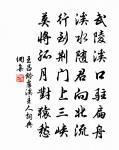 武陵溪口駐扁舟
溪水隨君向北流
行到荊門上三峽
莫將孤月對猿愁
王昌齡盧溪主人詞典
網集